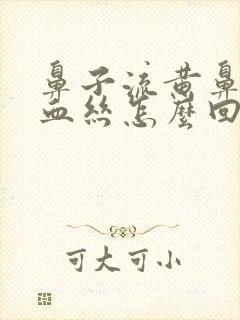 鼻子流黄鼻
血丝怎麼回
可大可小